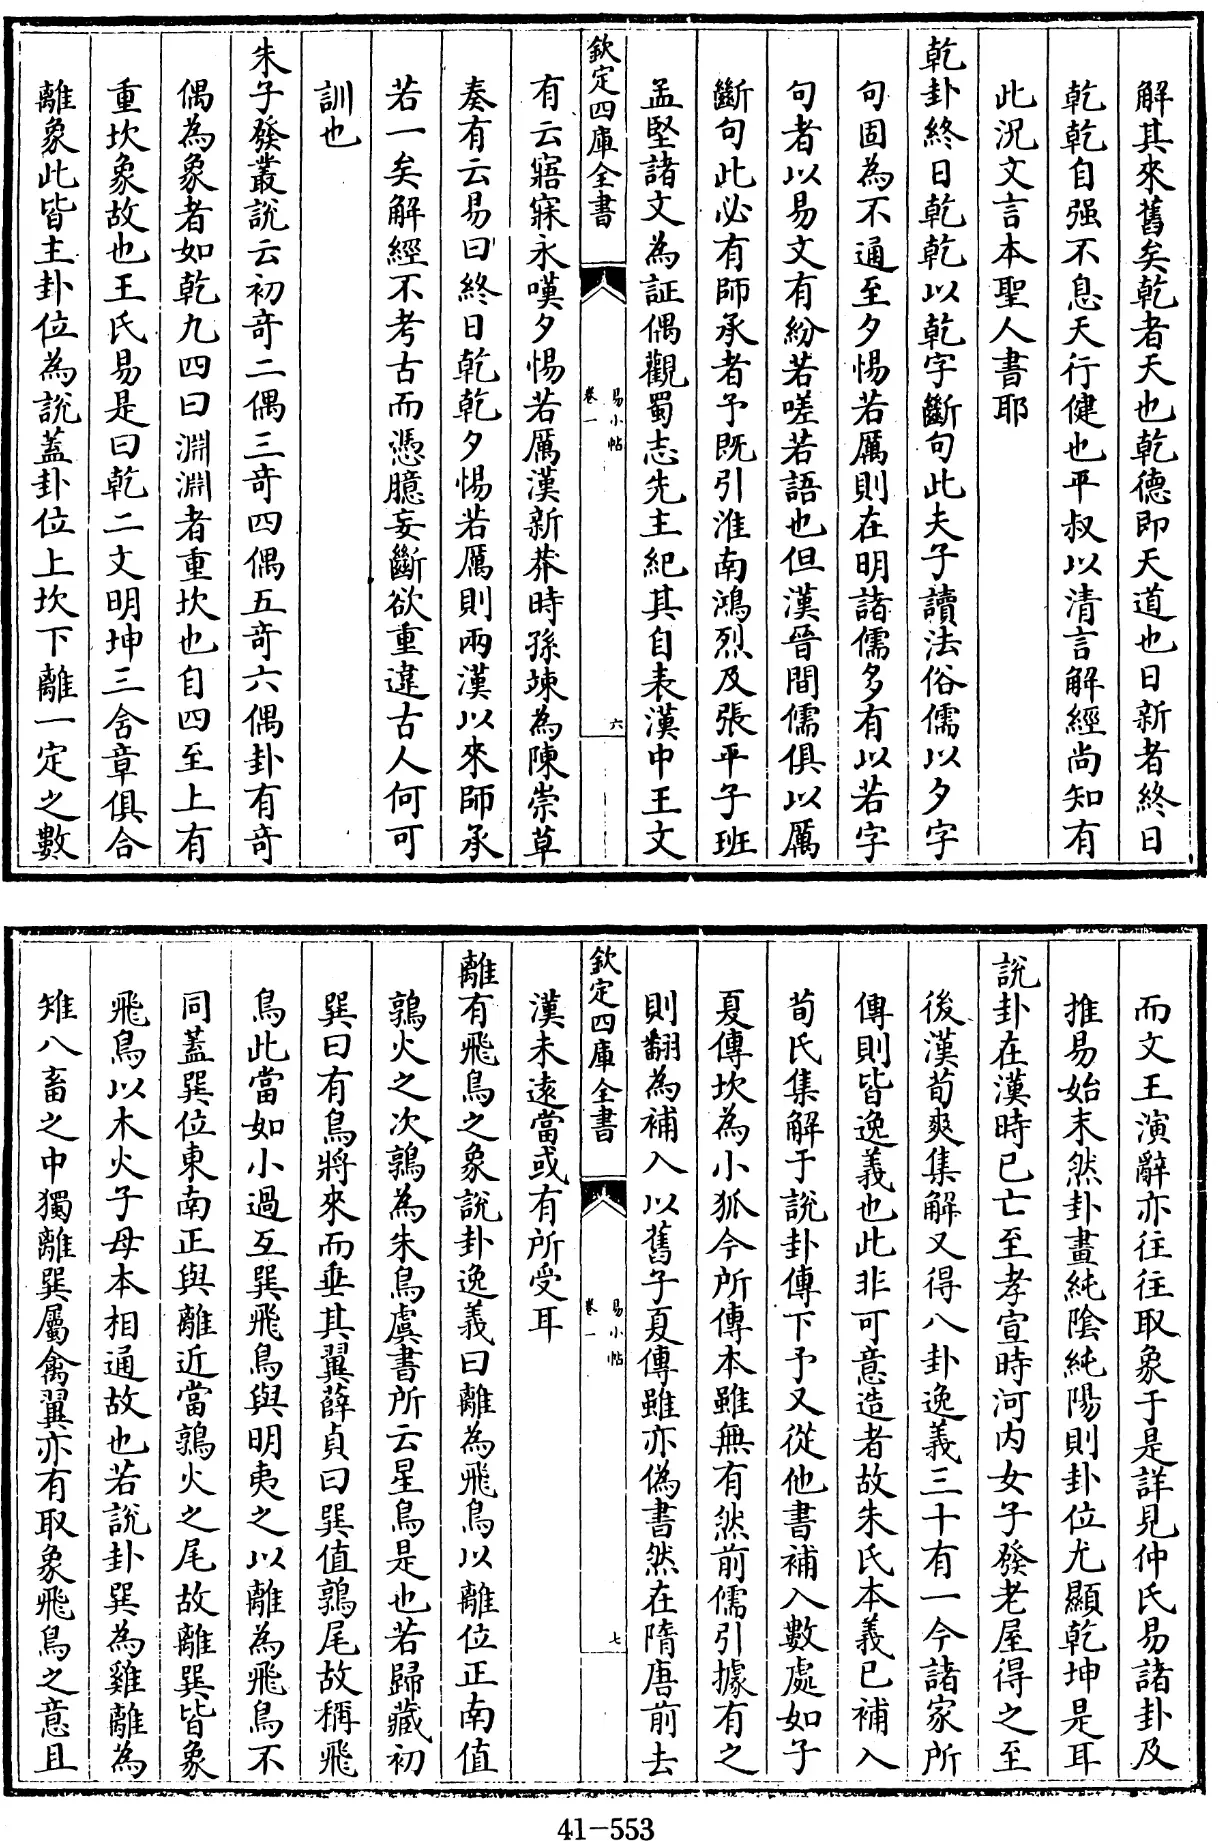 解其來舊矣乾者天也乾德即天道也日新者終日
乾乾自强不息天行健也平叔以清言解經尚知有
此況文言本聖人書耶
乾卦終日乾乾以乾字斷句此夫子讀法俗儒以夕字
句固為不通至夕惕若厲則在明諸儒多有以若字
句者以易文有紛若嗟若語也但漢晉間儒俱以厲
斷句此必有師承者予既引淮南鴻烈及張平子班
孟堅諸文為証偶觀蜀志先主紀其自表漢中王文
欽定四庫全書
易小帖
卷一
六
有云寤寐永嘆夕惕若厲漢新莽時孫竦為陳崇草
奏有云易曰終日乾乾夕惕若厲則兩漢以來師承
若一矣解經不考古而憑臆妄斷欲重違古人何可
訓也
朱子發叢說云初奇二偶三奇四偶五奇六偶卦有奇
偶為象者如乾九四曰淵淵者重坎也自四至上有
重坎象故也王氏易是曰乾二文明坤三含章俱合
離象此皆主卦位為說蓋卦位上坎下離一定之數
而文王演辭亦往往取象于是詳見仲氏易諸卦及
推易始末然卦畫純陰純陽則卦位尤顯乾坤是耳
說卦在漢時已亡至孝宣時河内女子發老屋得之至
後漢荀爽集解又得八卦逸義三十有一今諸家所
傳則皆逸義也此非可意造者故朱氏本義已補入
荀氏集解于說卦傳下予又從他書補入數處如子
夏傳坎為小狐今所傳本雖無有然前儒引據有之
則翻為補入以舊子夏傳雖亦偽書然在隋唐前去
欽定四庫全書
易小帖
卷一
七
漢未遠當或有所受耳
離有飛鳥之象說卦逸義曰離為飛鳥以離位正南值
鶉火之次鶉為朱鳥虞書所云星鳥是也若歸藏初
巽曰有鳥將來而垂其翼薛貞曰巽值鶉尾故稱飛
鳥此當如小過互巽飛鳥與明夷之以離為飛鳥不
同蓋巽位東南正與離近當鶉火之尾故離巽皆象
飛鳥以木火子母本相通故也若說卦巽為雞離為
雉八畜之中獨離巽屬禽翼亦有取象飛鳥之意且
41-553